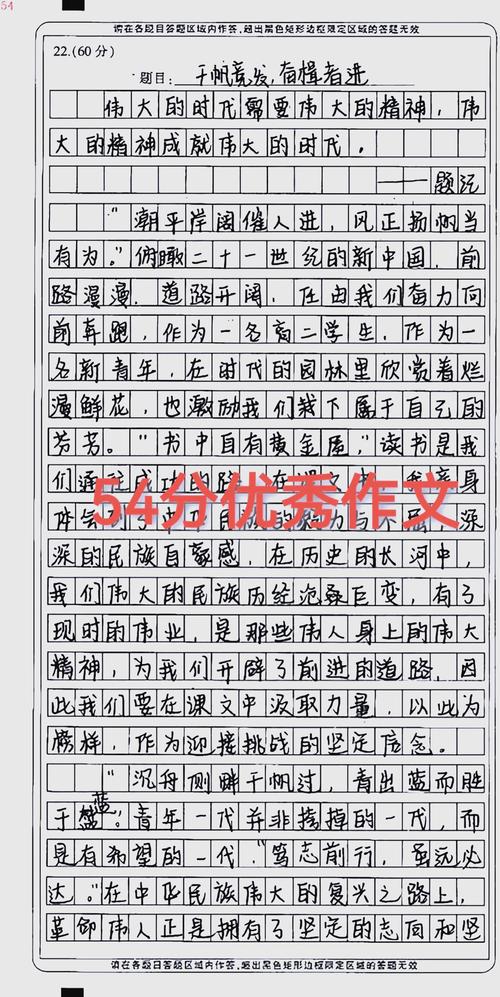 54
请在各题目答题区域内作答，超出黑色矩形边框限定区域的答题无效
22.(60分)
题目：千帆竞发，奋楫者进
伟大的时代需要伟大的精神，伟
大的精神成就伟大的时代。
——题记
“潮平岸阔催人进，风正扬帆当
有为。”俯瞰二十一世纪的新中国，前
路漫漫，道路开阔，任由我们奋力向
前奔跑，作为一名高二学生，作为一
名新青年，在时代的园林里欣赏着烂
漫鲜花，也激励我们栽下属于自己的
芬芳。“书中自有黄金屋，”读书是我
们通往成功的路，在课文中，我亲身
体会到
54分优秀作文
深的民族自豪感，在历史的长河中，
我们伟大的民族历经沧桑巨变，有了
现时的伟业，是那些伟人身上的伟大
精神，为我们开辟了前进的道路，因
此我们要在课文中汲取力量，以此为
榜样，作为迎接挑战的坚定信念。
“沉舟侧畔千帆过，青出蓝而胜
于蓝。”青年一代并非垮掉的一代，而
是有希望的一代。“笃志前行，虽远必
达。”在中华民族伟大的复兴之路上，
革命伟人正是拥有了坚定的志向和坚
请在各题目答题区域内作答，超出黑色矩形边框限定区域的答题无效